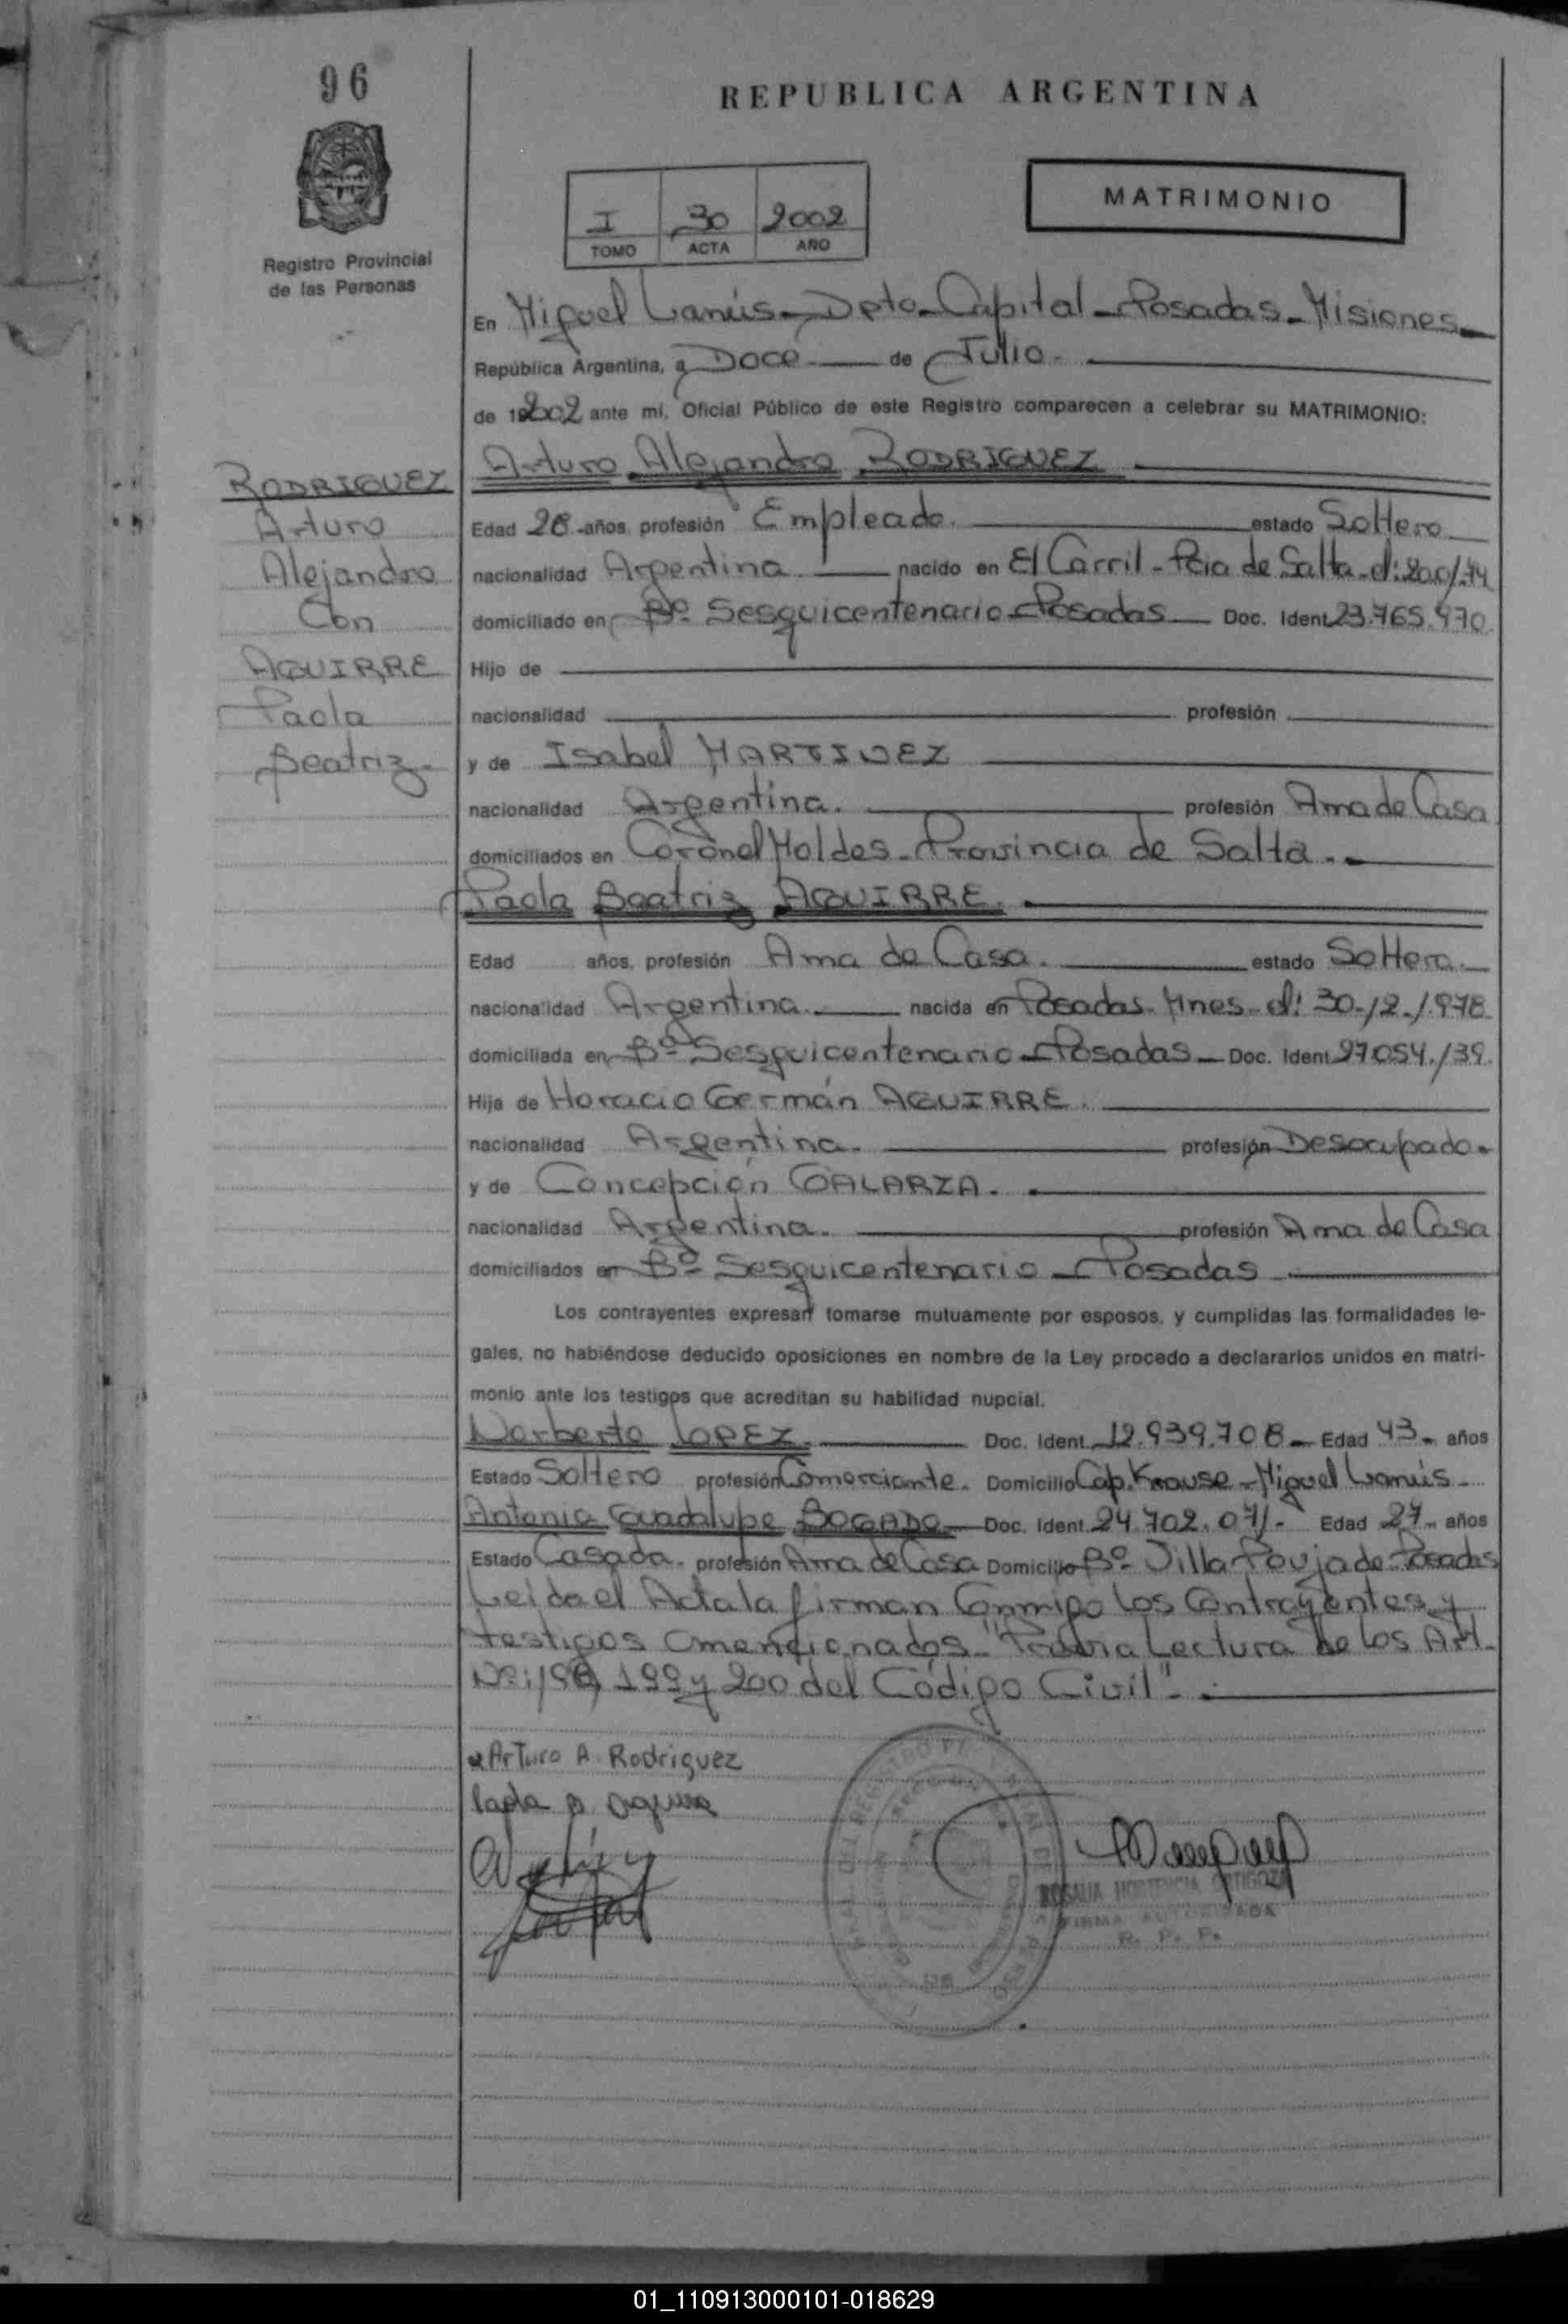 96
REPUBLICA ARGENTINA
MATRIMONIO
I 30 2002
TOMO ACTA AÑO
Registro Provincial
de las Personas
En Miguel Lanús - Dpto - Capital - Posadas - Misiones
República Argentina, a Doce de Julio.
de 2002 ante mi, Oficial Público de este Registro comparecen a celebrar su MATRIMONIO:
Arturo Alejandro RODRIGUEZ
RODRIGUEZ
Arturo
Alejandro
Con
AGUIRRE
Paola
Beatriz.
Edad 28 años, profesión Empleado. estado Soltero
nacionalidad Argentina nacido en El Carril - Pcia de Salta
domiciliado en Bº Sesquicentenario - Posadas Doc. Ident. 23.765.970
Hijo de
nacionalidad profesión
y de Isabel MARTINEZ
nacionalidad Argentina. profesión Ama de Casa
domiciliados en Coronel Moldes - Provincia de Salta.
Paola Beatriz AGUIRRE.
Edad años, profesión Ama de Casa. estado Soltera.
nacionalidad Argentina. nacida en Posadas - Mnes - el: 30-12-1978
domiciliada en Bº Sesquicentenario - Posadas - Doc. Ident. 27.054.139.
Hija de Horacio Germán AGUIRRE.
nacionalidad Argentina. profesión Desocupado.
y de Concepción GALARZA.
nacionalidad Argentina. profesión Ama de Casa
domiciliados en Bº Sesquicentenario - Posadas
Los contrayentes expresan tomarse mutuamente por esposos, y cumplidas las formalidades le-
gales, no habiéndose deducido oposiciones en nombre de la Ley procedo a declararlos unidos en matri-
monio ante los testigos que acreditan su habilidad nupcial.
Norberto LOPEZ. Doc. Ident. 12.939.708 - Edad 43 - años
Estado Soltero profesión Comerciante. Domicilio Cap. Krause - Miguel Lanús -
Antonia Guadalupe BOGADO Doc. Ident. 24.702.071 - Edad 27 - años
Estado Casada - profesión Ama de Casa Domicilio Bº Villa Poujade - Posadas
Leida el Acta la firman Conmigo los Contrayentes y
testigos mencionados "Previa Lectura de los Art.
Nº: 198, 199 y 200 del Código Civil".
Arturo A. Rodriguez
Paola B Aguirre
ROSALIA HORTENCIA ORTIGOZA
FIRMA AUTORIZADA
R. P. P.
01_110913000101-018629